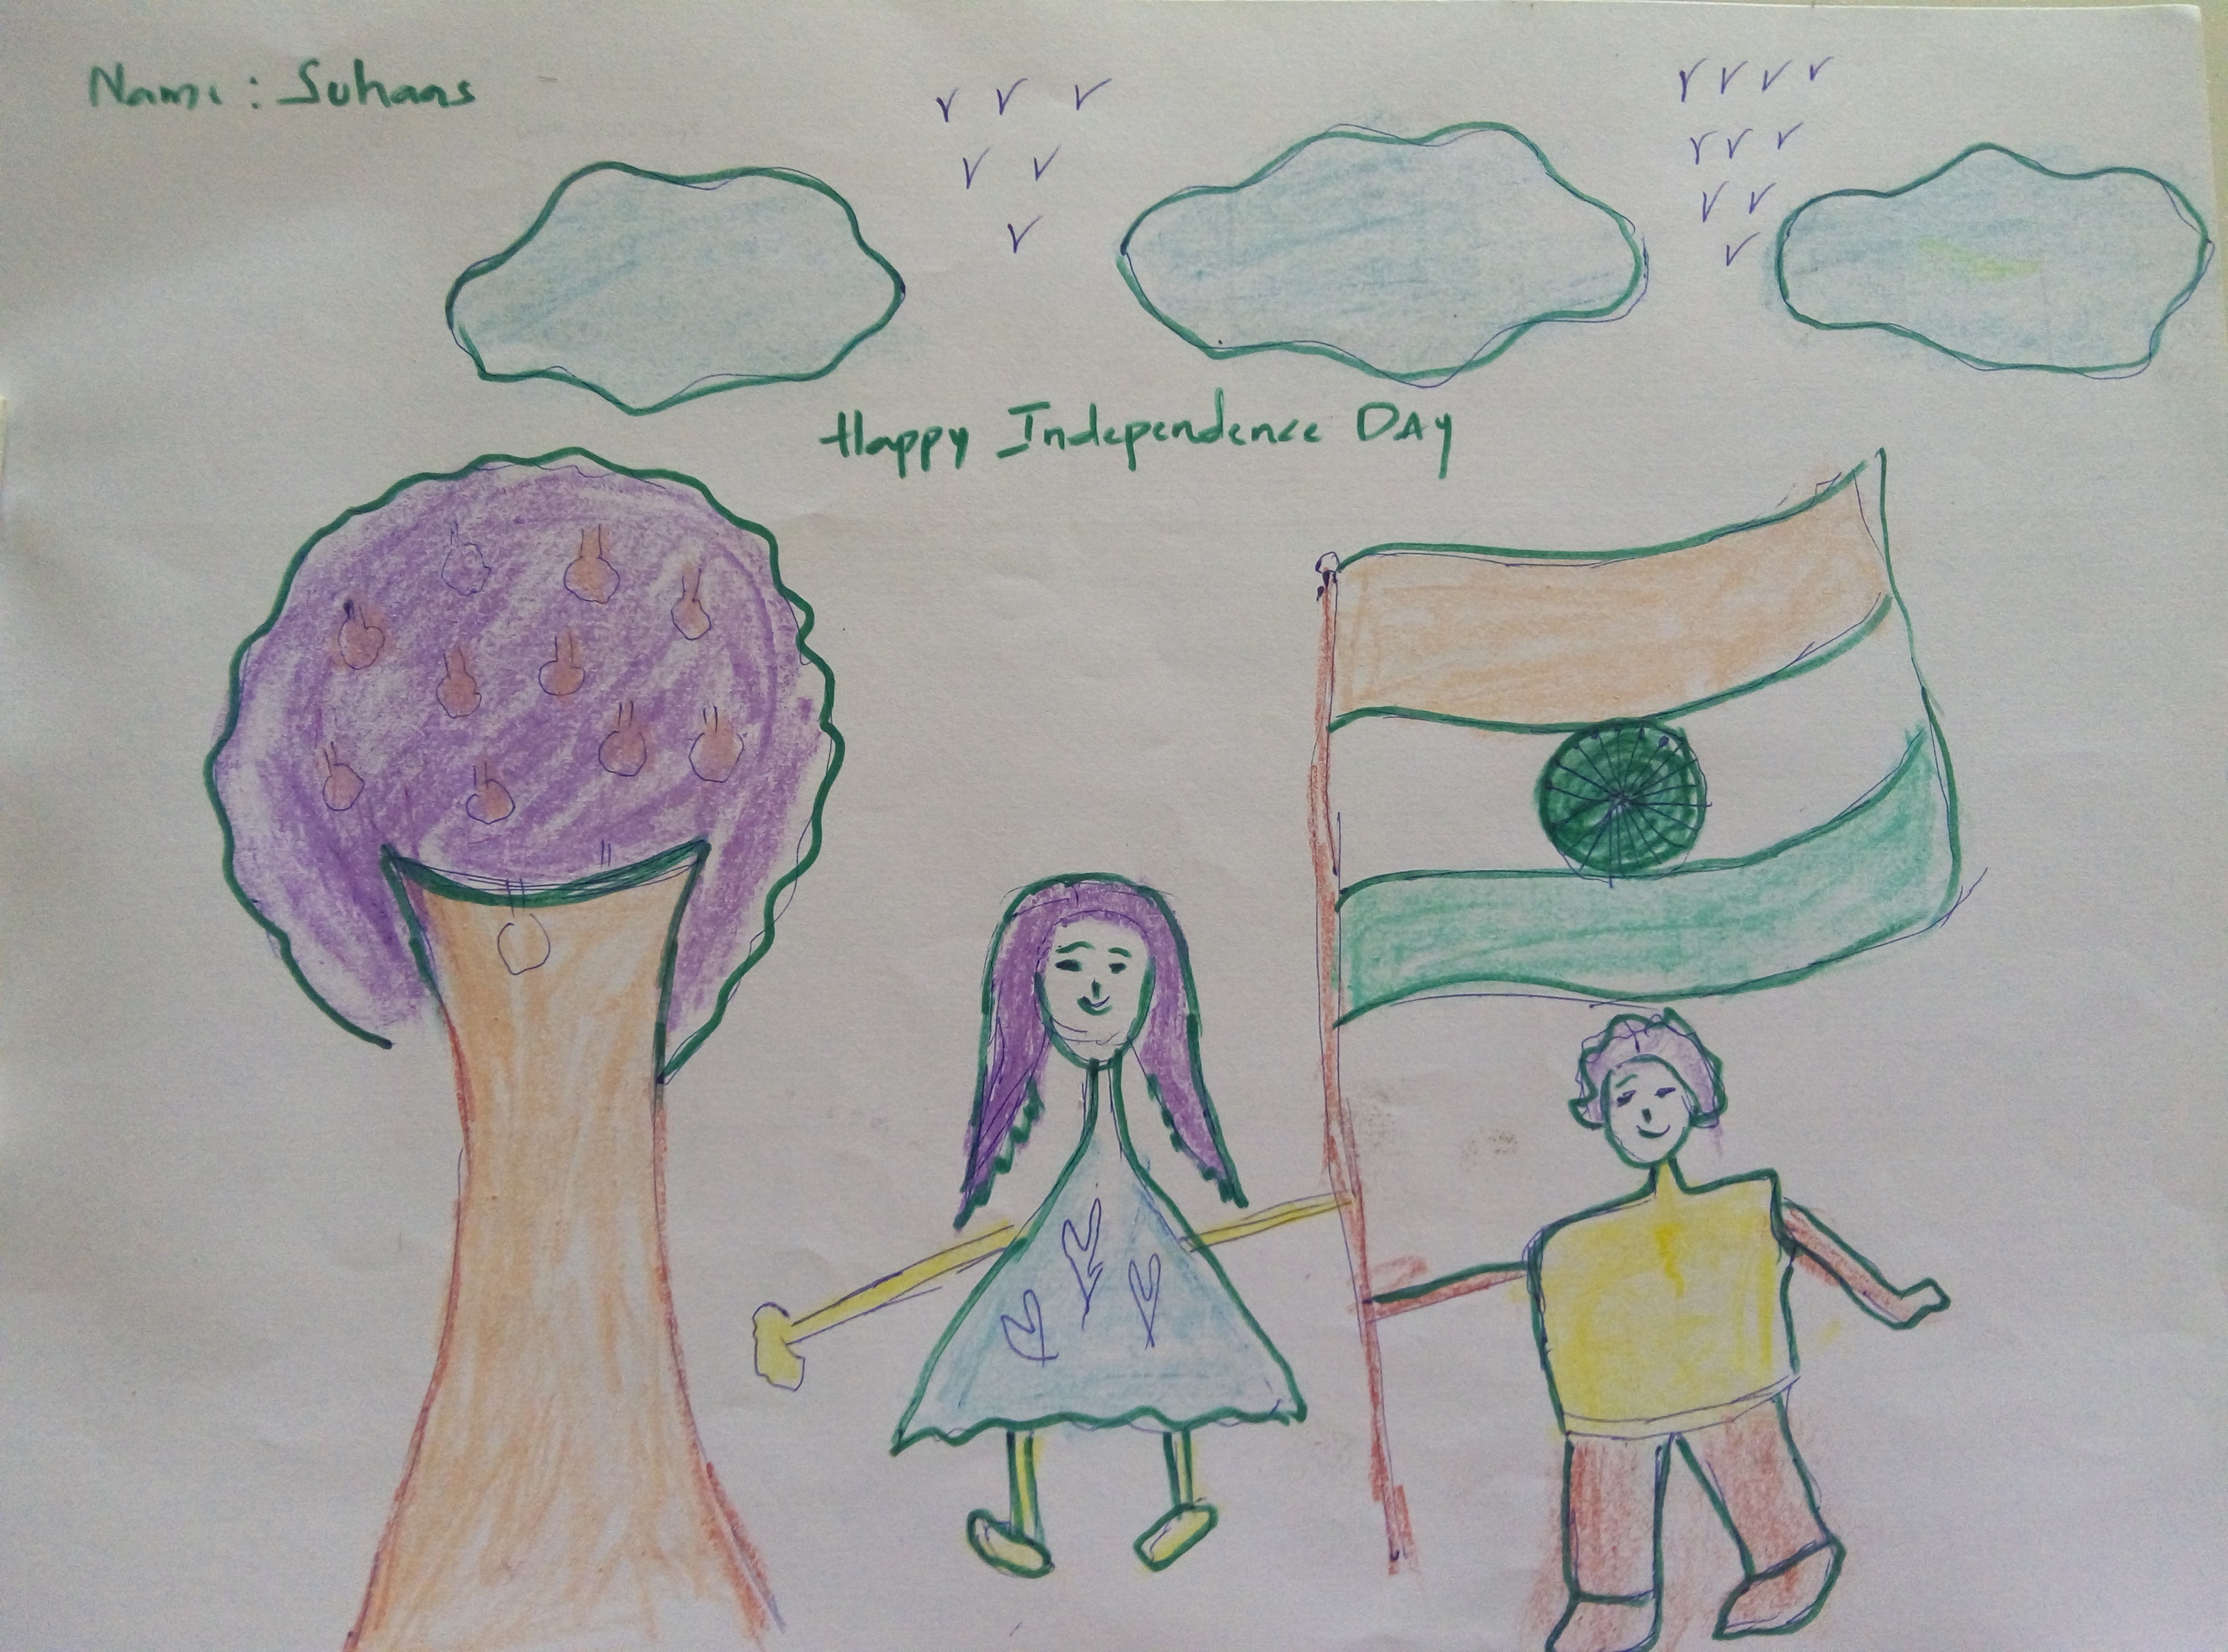 Name: Suhaas
Happy Independence DAY